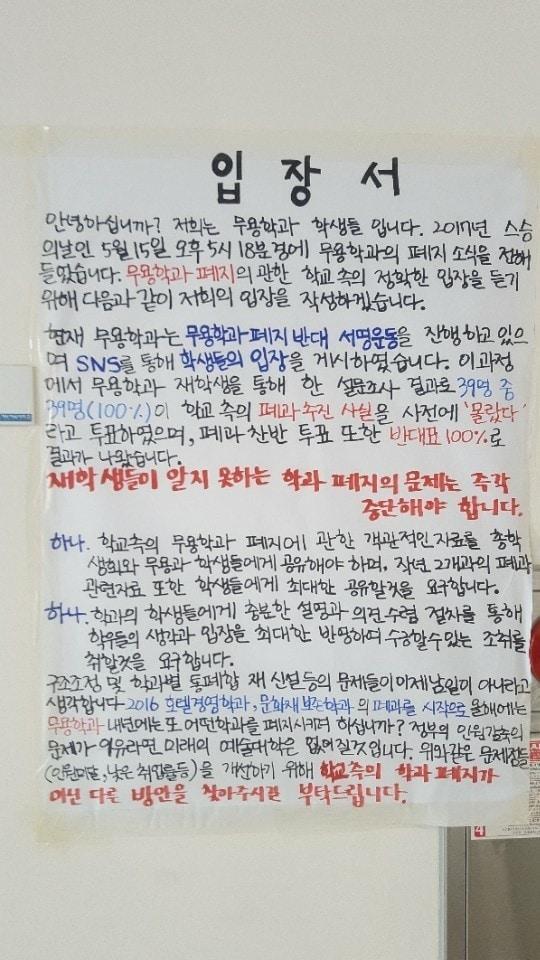 입장서
안녕하십니까? 저희는 무용학과 학생들 입니다. 2017년 스승
의날인 5월 15일 오후 5시 18분경에 무용학과의 폐지 소식을 전해
들었습니다. 무용학과 폐지의 관한 학교측의 정확한 입장을 듣기
위해 다음과 같이 저희의 입장을 작성하겠습니다.
현재 무용학과는 무용학과 폐지 반대 서명운동을 진행하고 있으
며 SNS를 통해 학생들의 입장을 게시하였습니다. 이과정
에서 무용학과 재학생을 통해 한 설문조사 결과로 39명 중
39명(100%)이 학교 측의 폐과 추진 사실을 사전에 '몰랐다'
라고 투표하였으며, 폐과 찬반 투표 또한 반대표 100%로
결과가 나왔습니다.
재학생들이 알지 못하는 학과 폐지의 문제는 즉각
중단해야 합니다.
하나. 학교측의 무용학과 폐지에 관한 객관적인 자료를 총학
생회와 무용과 학생들에게 공유해야 하며, 작년 2개과의 폐과
관련자료 또한 학생들에게 최대한 공유할것을 요구합니다.
하나. 학과의 학생들에게 충분한 설명과 의견수렴 절차를 통해
학우들의 생각과 입장을 최대한 반영하며 수긍할수있는 조취를
취할것을 요구합니다.
구조조정 및 학과별 통폐합 재 신설등의 문제들이 이제 남일이 아니라고
생각합니다 2016 호텔경영학과, 문화재보존학과의 폐과를 시작으로 올해에는
무용학과 내년에는 또 어떤학과를 폐지시키려 하십니까? 정부의 인원감축의
문제가 이유라면 미래의 예술대학은 없어질것입니다. 위와같은 문제점들
(인원미달, 낮은 취업률등)을 개선하기 위해 학교측의 학과 폐지가
아닌 다른 방안을 찾아주시길 부탁드립니다.